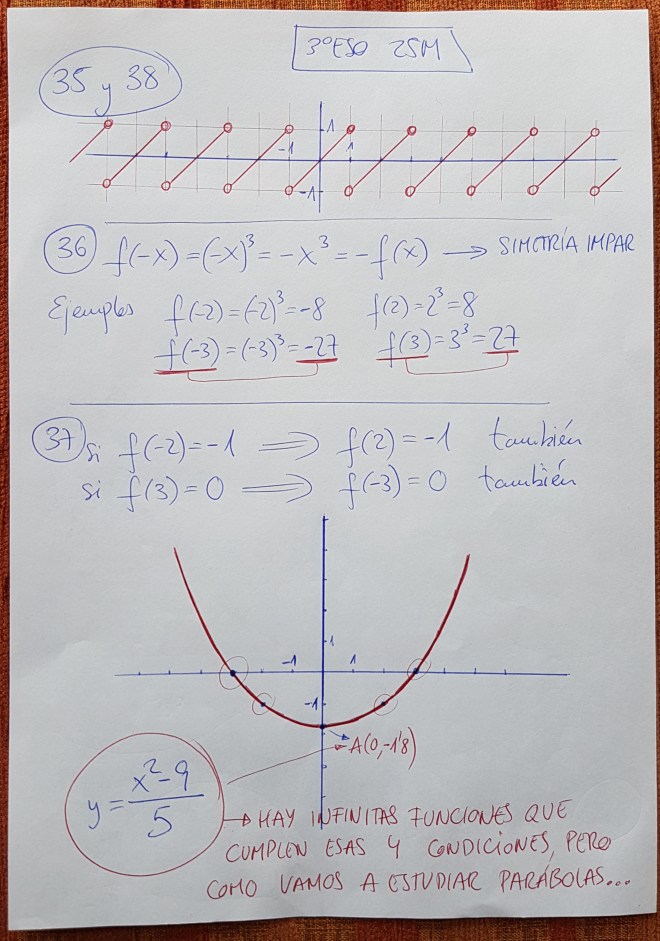 3ºESO 25M
35 y 38
1
-1 1
-1
36 f(-x)=(-x)³=-x³=-f(x) → SIMETRÍA IMPAR
Ejemplos f(-2)=(-2)³=-8 f(2)=2³=8
f(-3)=(-3)³=-27 f(3)=3³=27
37 si f(-2)=-1 ⟹ f(2)=-1 también
si f(3)=0 ⟹ f(-3)=0 también
1
-1 1
-1
A(0,-1'8)
y=(x²-9)/5
→ HAY INFINITAS FUNCIONES QUE
CUMPLEN ESAS 4 CONDICIONES, PERO
COMO VAMOS A ESTUDIAR PARÁBOLAS...